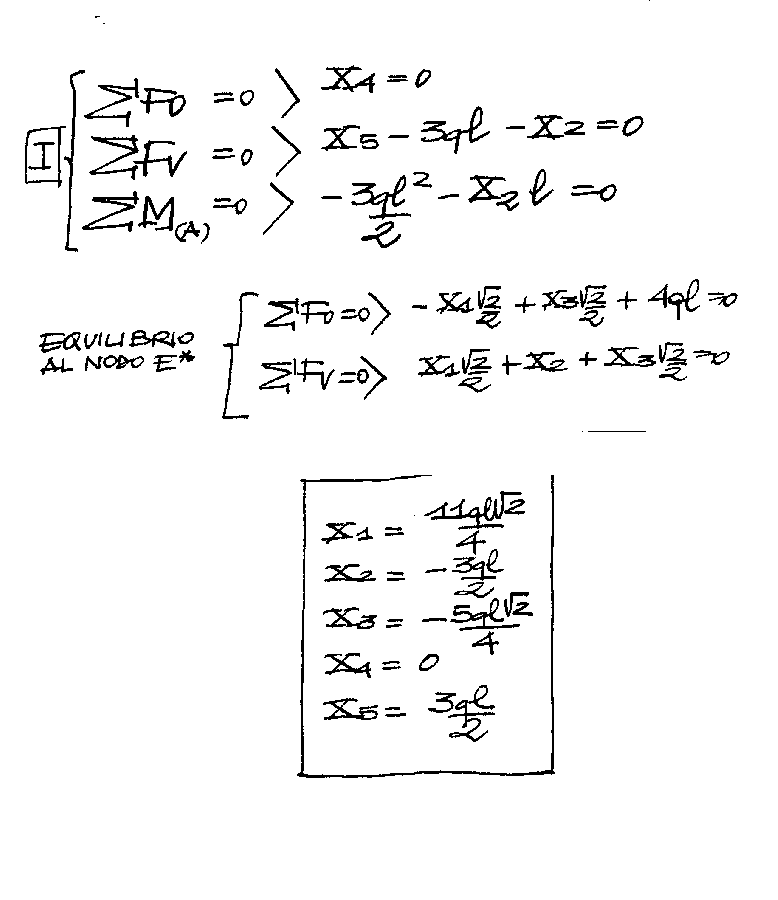 I
ΣFo = 0 > X4 = 0
ΣFv = 0 > X5 - 3ql - X2 = 0
ΣM(A) = 0 > -3ql²/2 - X2 l = 0
EQUILIBRIO
AL NODO E*
ΣFo = 0 > -X1√2/2 + X3√2/2 + 4ql = 0
ΣFv = 0 > X1√2/2 + X2 + X3√2/2 = 0
X1 = 11ql√2/4
X2 = -3ql/2
X3 = -5ql√2/4
X4 = 0
X5 = 3ql/2